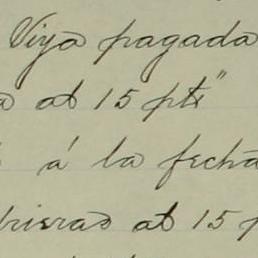 Viya pagada
a at 15 pts"
á la fecha
brieras at 15 p